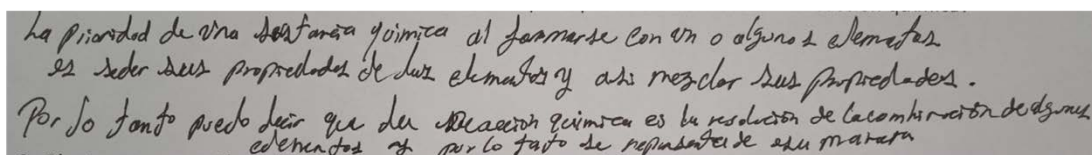 La prioridad de una sustancia química al formarse con un o algunos elementos
es seder sus propiedades de sus elementos y asi mezclar sus propiedades.
Por lo tanto puedo decir que la reaccion química es la resolución de la combinación de algunos
elementos y por lo tanto se representa de esa manera